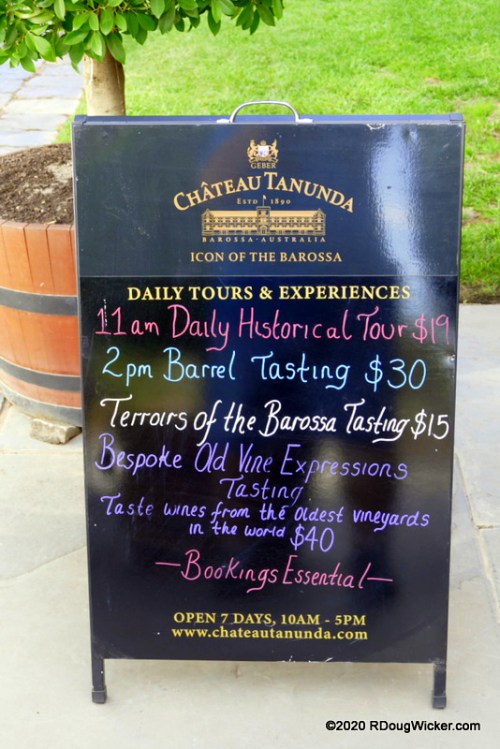 GEBER
CHÂTEAU TANUNDA
ESTD 1890
BAROSSA · AUSTRALIA
ICON OF THE BAROSSA
DAILY TOURS & EXPERIENCES
11am Daily Historical Tour $19
2pm Barrel Tasting $30
Terroirs of the Barossa Tasting $15
Bespoke Old Vine Expressions
Tasting
Taste wines from the oldest vineyards
in the world $40
—Bookings Essential—
OPEN 7 DAYS, 10AM - 5PM
www.chateautanunda.com
©2020 RDougWicker.com